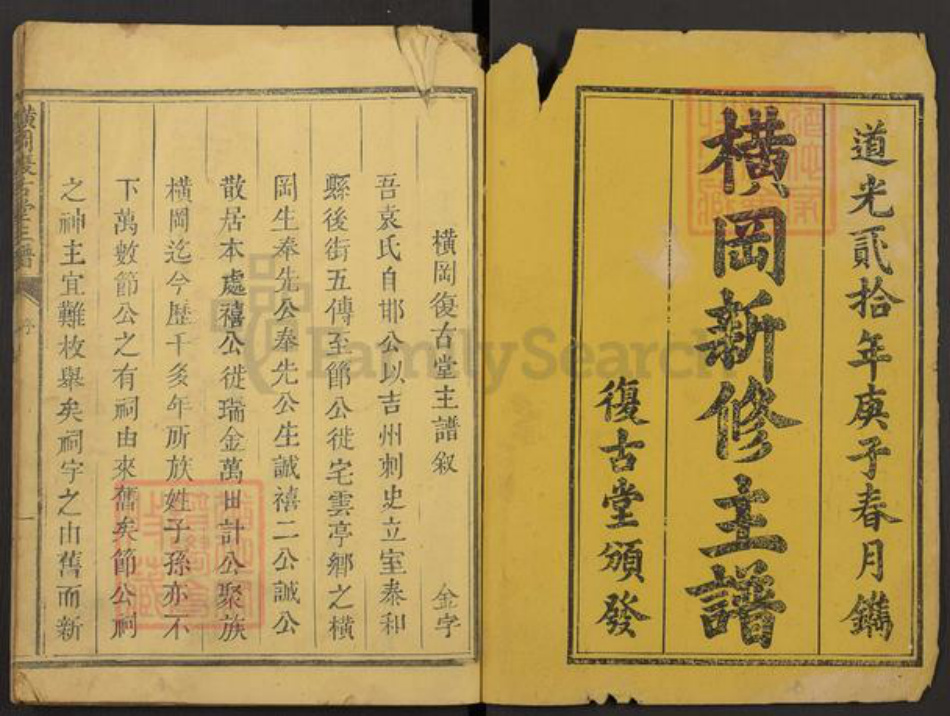 道光貳拾年庚子春月鐫
橫岡新修主譜
復古堂頒發
橫岡復古堂主譜叙
金字
吾袁氏自邯公以吉州刺史立室泰和
縣後街五傳至節公徙宅雲亭鄉之橫
岡生奉先公奉先公生誠禧二公誠公
散居本處禧公徙瑞金萬田計公聚族
橫岡迄今歷千多年所族姓子孫亦不
下萬數節公之有祠由來舊矣節公祠
之神主宜難枚舉矣祠字之由舊而新
橫岡復古堂主譜
序
一
FamilySearch